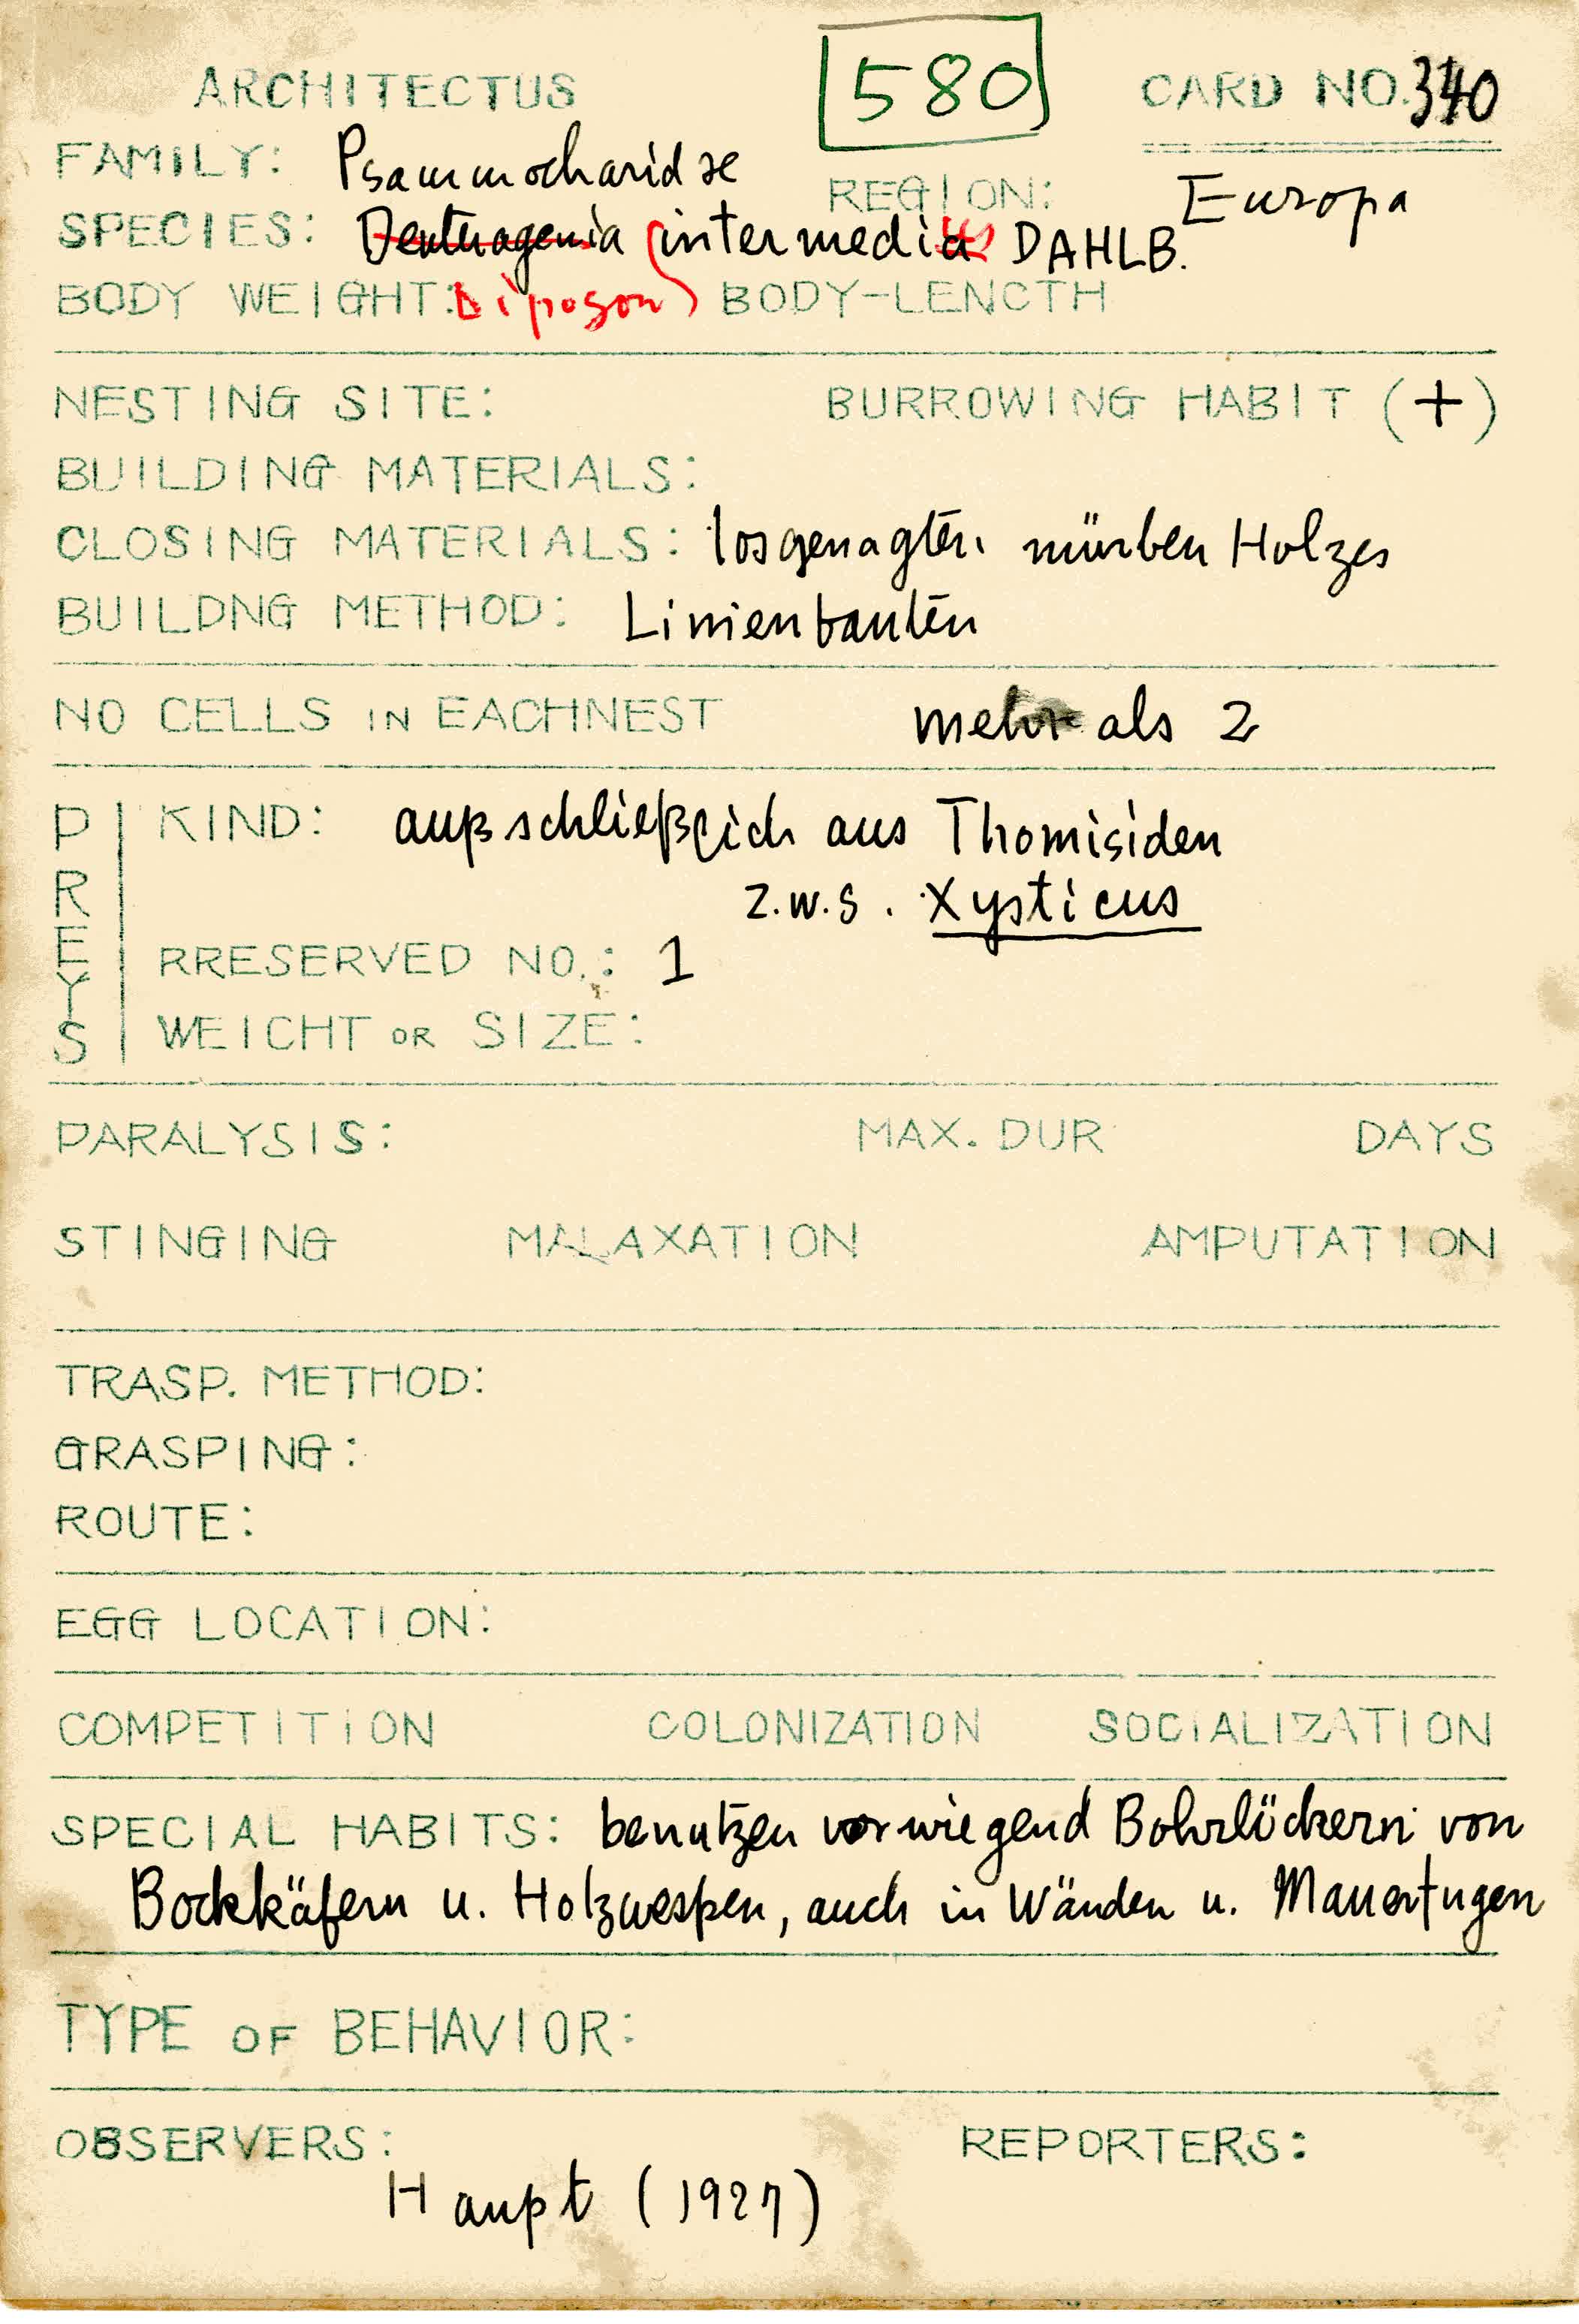 580
ARCHITECTUS CARD NO. 340
FAMILY: Psammocharidae REGION: Europa
SPECIES: Deuteragenia intermedia DAHLB.
BODY WEIGHT: Dipogon BODY-LENCTH
NESTING SITE: BURROWING HABIT (+)
BUILDING MATERIALS:
CLOSING MATERIALS: losgenagten mürben Holzes
BUILDNG METHOD: Linienbauten
NO CELLS IN EACHNEST mehr als 2
PREYS
KIND: außschließlich aus Thomisiden
z.w.s. Xysticus
RRESERVED NO.: 1
WEICHT OR SIZE:
PARALYSIS: MAX. DUR DAYS
STINGING MALAXATION AMPUTATION
TRASP. METHOD:
GRASPING:
ROUTE:
EGG LOCATION:
COMPETITION COLONIZATION SOCIALIZATION
SPECIAL HABITS: benutzen vorwiegend Bohrlöchern von
Bockkäfern u. Holzwespen, auch in Wänden u. Mauerfugen
TYPE OF BEHAVIOR:
OBSERVERS: REPORTERS:
Haupt (1927)